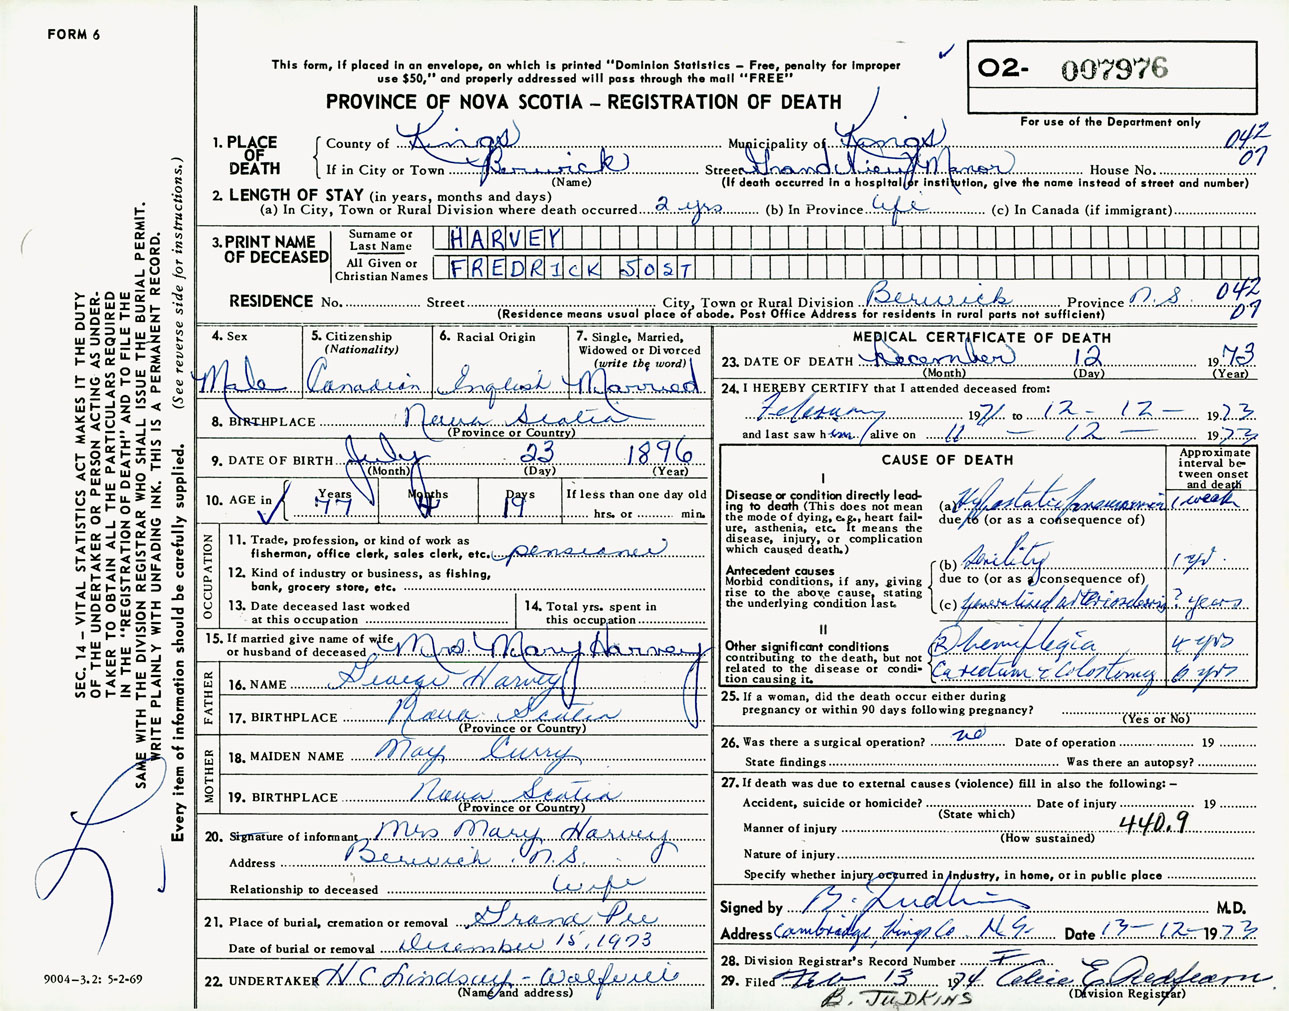 FORM 6
This form, if placed in an envelope, on which is printed "Dominion Statistics – Free, penalty for improper
use $50," and properly addressed will pass through the mail "FREE"
PROVINCE OF NOVA SCOTIA – REGISTRATION OF DEATH
O2- 007976
For use of the Department only
SEC. 14 – VITAL STATISTICS ACT MAKES IT THE DUTY
OF THE UNDERTAKER OR PERSON ACTING AS UNDER-
TAKER TO OBTAIN ALL THE PARTICULARS REQUIRED
IN THE "REGISTRATION OF DEATH" AND TO FILE THE
SAME WITH THE DIVISION REGISTRAR WHO SHALL ISSUE THE BURIAL PERMIT.
WRITE PLAINLY WITH UNFADING INK. THIS IS A PERMANENT RECORD.
Every item of information should be carefully supplied. (See reverse side for instructions.)
1. PLACE OF DEATH
County of Kings Municipality of Kings 042
If in City or Town Berwick Street Grand View Manor House No. 07
(Name) (If death occurred in a hospital or institution, give the name instead of street and number)
2. LENGTH OF STAY (in years, months and days)
(a) In City, Town or Rural Division where death occurred 2 yrs (b) In Province life (c) In Canada (if immigrant)
3. PRINT NAME OF DECEASED
Surname or Last Name HARVEY
All Given or Christian Names FREDRICK JOST
RESIDENCE No. Street City, Town or Rural Division Berwick Province N.S. 042
(Residence means usual place of abode. Post Office Address for residents in rural parts not sufficient) 07
4. Sex Male
5. Citizenship (Nationality) Canadian
6. Racial Origin English
7. Single, Married, Widowed or Divorced (write the word) Married
8. BIRTHPLACE Nova Scotia
(Province or Country)
9. DATE OF BIRTH July 23 1896
(Month) (Day) (Year)
10. AGE in Years 77 Months 4 Days 19 If less than one day old
hrs. or min.
OCCUPATION
11. Trade, profession, or kind of work as
fisherman, office clerk, sales clerk, etc. pensioner
12. Kind of industry or business, as fishing,
bank, grocery store, etc.
13. Date deceased last worked
at this occupation
14. Total yrs. spent in
this occupation
15. If married give name of wife
or husband of deceased Mrs. Mary Harvey
FATHER
16. NAME George Harvey
17. BIRTHPLACE Nova Scotia
(Province or Country)
MOTHER
18. MAIDEN NAME May Curry
19. BIRTHPLACE Nova Scotia
(Province or Country)
20. Signature of informant Mrs Mary Harvey
Address Berwick N.S.
Relationship to deceased wife
21. Place of burial, cremation or removal Grand Pre
Date of burial or removal December 15, 1973
22. UNDERTAKER H C Lindsay - Wolfville
(Name and address)
9004–3.2: 5-2-69
MEDICAL CERTIFICATE OF DEATH
23. DATE OF DEATH December 12 1973
(Month) (Day) (Year)
24. I HEREBY CERTIFY that I attended deceased from:
February 1971 to 12 - 12 - 1973
and last saw him alive on 11 - 12 - 1973
CAUSE OF DEATH
Approximate interval between onset and death
I
Disease or condition directly lead-
ing to death (This does not mean
the mode of dying, e.g., heart fail-
ure, asthenia, etc. It means the
disease, injury, or complication
which caused death.)
(a) Hypostatic pneumonia 1 week
due to (or as a consequence of)
Antecedent causes
Morbid conditions, if any, giving
rise to the above cause, stating
the underlying condition last.
(b) Senility 1 yr.
due to (or as a consequence of)
(c) generalized arteriosclerosis ? years
II
Other significant conditions
contributing to the death, but not
related to the disease or condi-
tion causing it.
(R) hemiplegia 4 yrs
Ca rectum & colostomy 6 yrs
25. If a woman, did the death occur either during
pregnancy or within 90 days following pregnancy?
(Yes or No)
26. Was there a surgical operation? no Date of operation 19
State findings Was there an autopsy?
27. If death was due to external causes (violence) fill in also the following: –
Accident, suicide or homicide? Date of injury 19
(State which)
Manner of injury 440.9
(How sustained)
Nature of injury
Specify whether injury occurred in industry, in home, or in public place
Signed by B. Judkins M.D.
Address Cambridge, Kings Co. N.S. Date 13-12-1973
28. Division Registrar's Record Number
29. Filed Feb 13 1974 Celia E. Redfearn
(Division Registrar)
B. JUDKINS